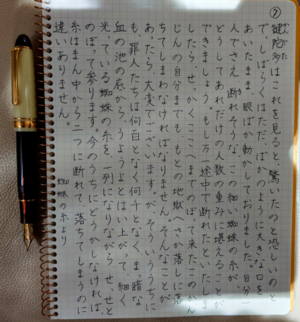 ⑦
犍陀多はこれを見ると、驚いたのと恐しいのと
で、しばらくはただ、ばかのように大きな口を
あいたまま、眼ばかり動かしておりました。自分一
人でさえ断れそうな、この細い蜘蛛の糸が、
どうしてあれだけの人数の重みに堪えることが
できましょう。もし万一途中で断れたといたしま
したら、せっかくここへまでのぼって来たこのかん
じんの自分までも、もとの地獄へさか落しに落
ちてしまわなければなりません。そんなことが
あったら、大変でございます。が、そういううちに
も、罪人たちは何百となく何千となく、まっ暗な
血の池の底から、うようよとはい上がって、細く
光っている蜘蛛の糸を、一列になりながら、せっせと
のぼって参ります。今のうちにどうかしなければ、
糸はまん中から二つに断れて、落ちてしまうのに
違いありません。
蜘蛛の糸より